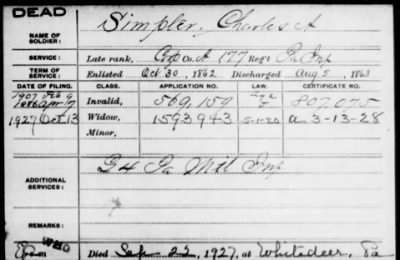 DEAD
NAME OF SOLDIER: Simpler, Charles A
SERVICE: Late rank, Co. A 177 Reg't Pa Inf
TERM OF SERVICE: Enlisted Oct. 30, 1862 Discharged Aug 5, 1863
DATE OF FILING. CLASS. APPLICATION NO. LAW. CERTIFICATE NO.
1907 Feb 9
1886 Apr 17 Invalid, 569,159 807,075
1927 Oct 13 Widow, 1593943 5-1-20 a. 3-13-28
Minor,
ADDITIONAL SERVICES: G 4 Pa Mil Inf
REMARKS:
WHO
Died Sep 22, 1927, at Whitedeer, Pa